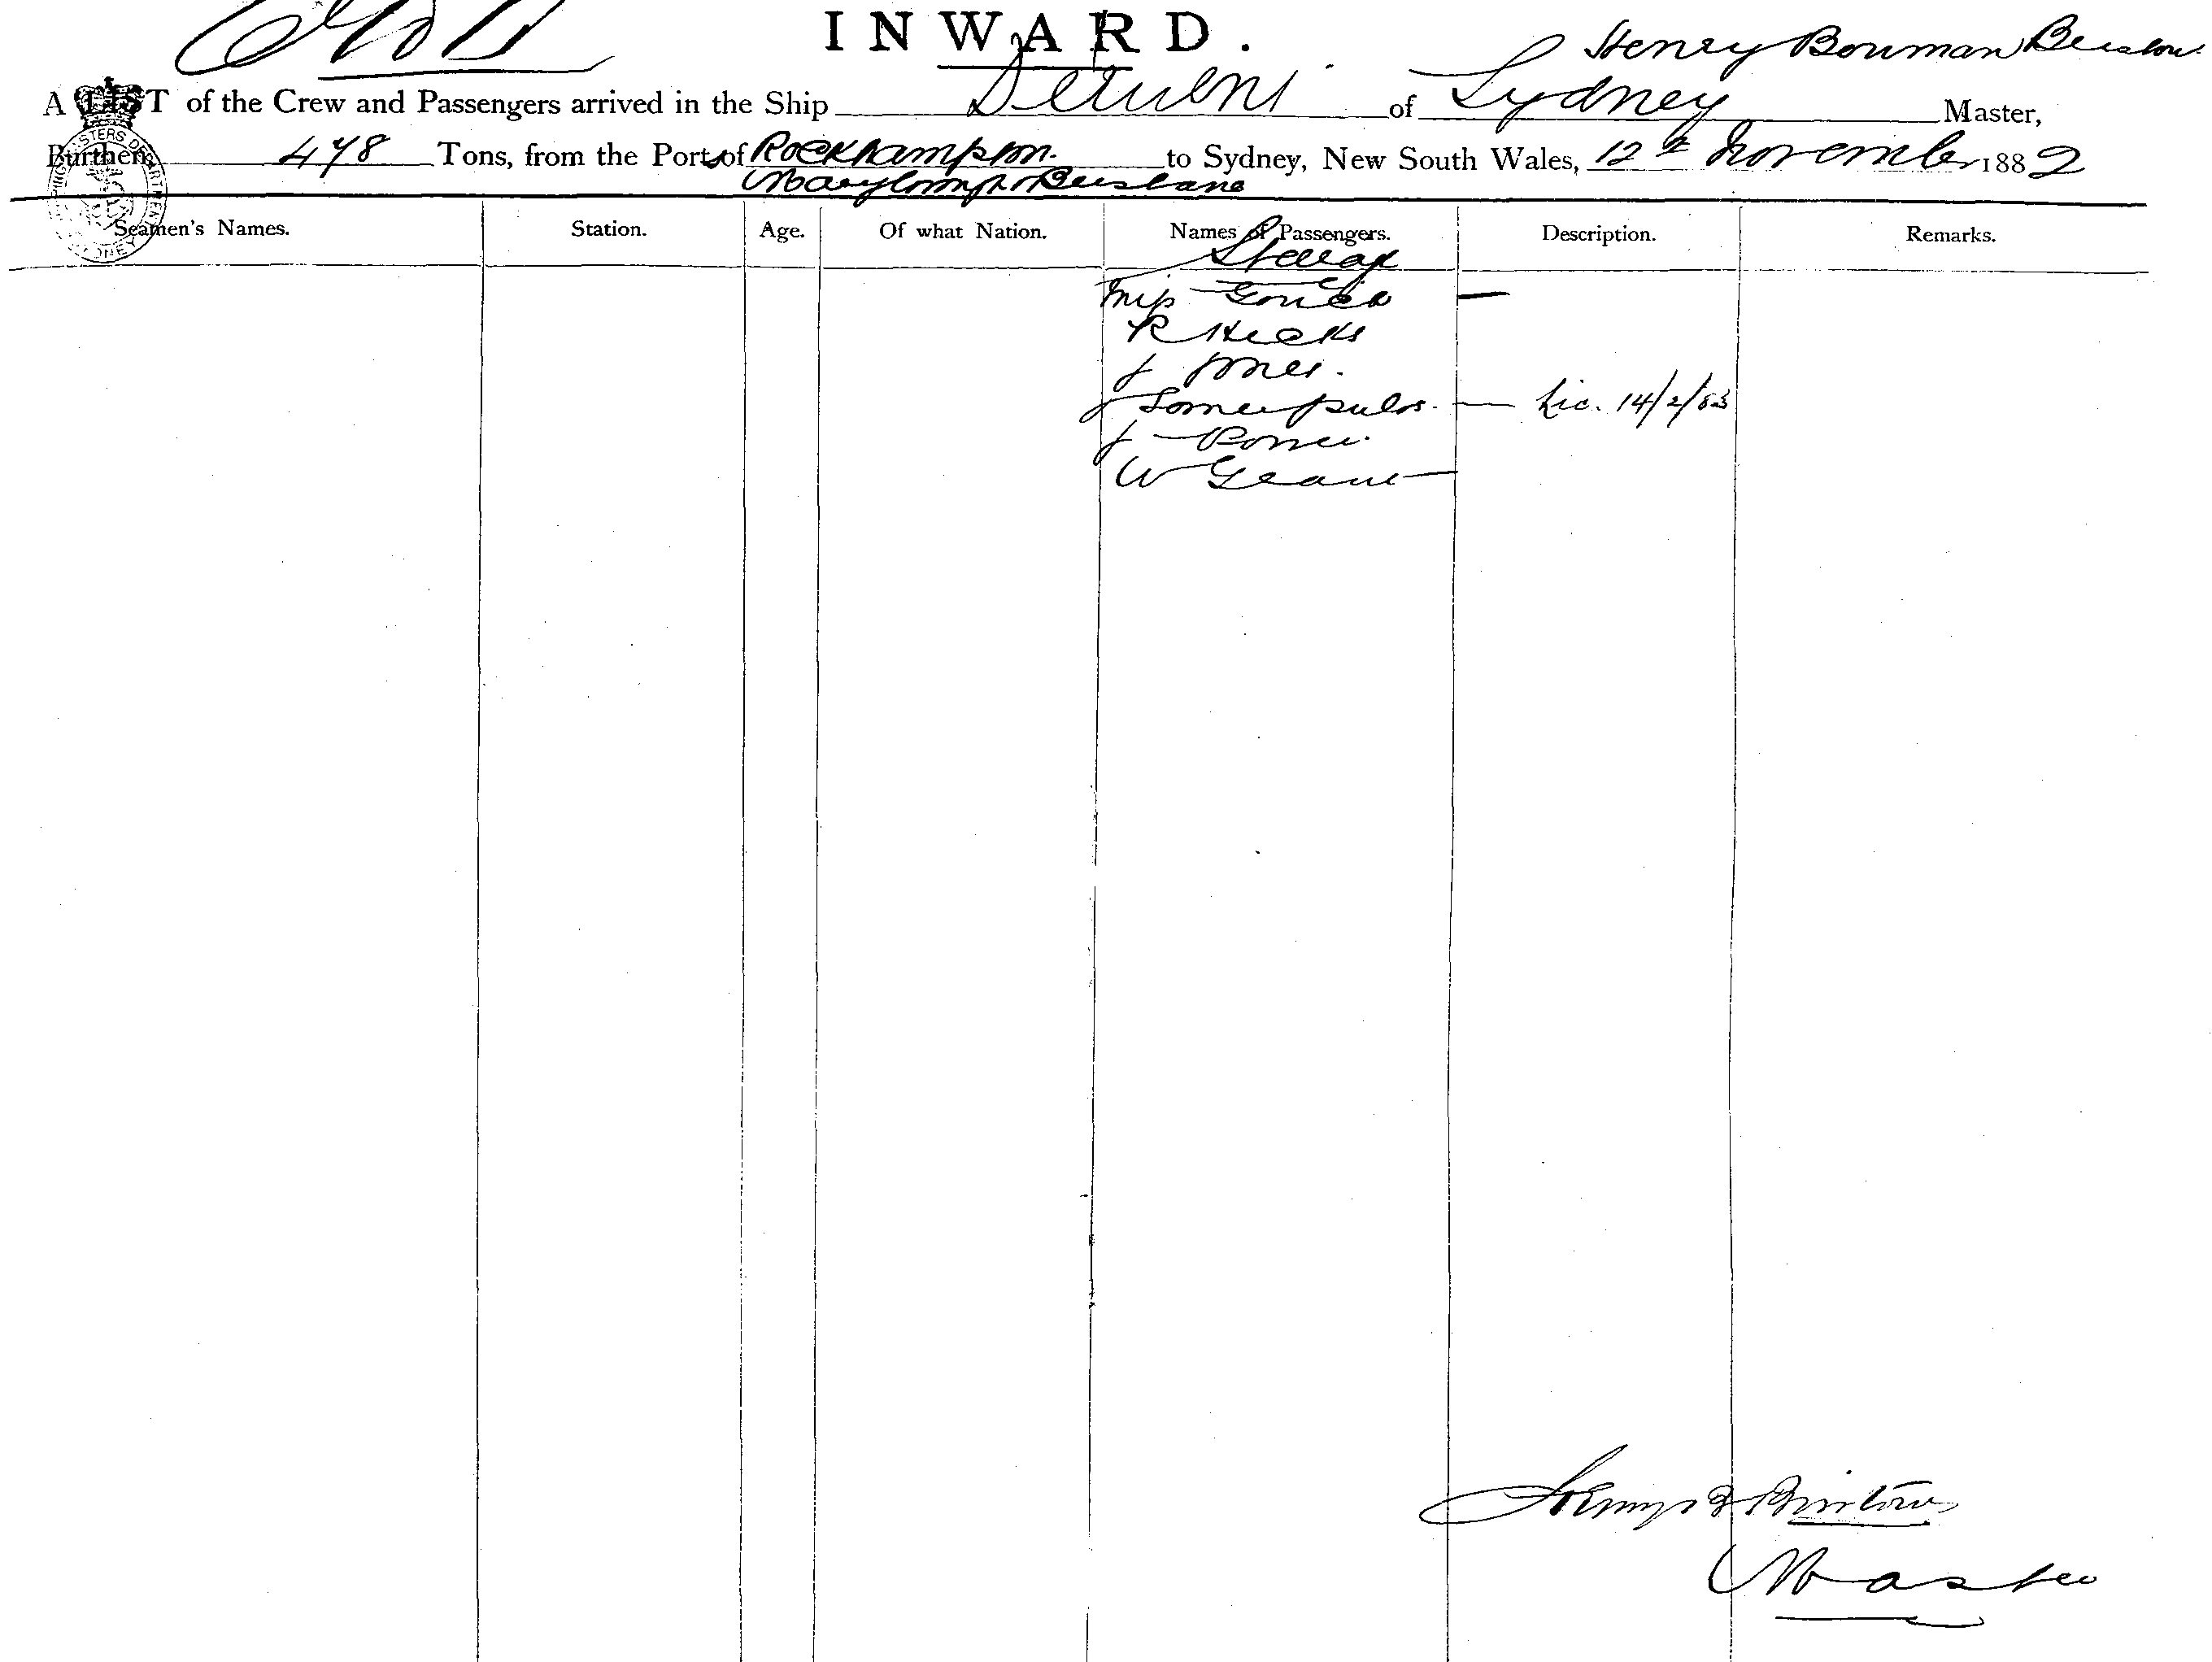 INWARD.
Henry Bowman Bristow
A LIST of the Crew and Passengers arrived in the Ship of Sydney Master,
Burthen 478 Tons, from the Ports of Rockhampton. to Sydney, New South Wales, 12th November 1882
Brisbane
Seamen's Names. Station. Age. Of what Nation. Names of Passengers. Description. Remarks.
Steerage
Miss
R Hicks
J Jones.
J Lic. 14/2/83
J
W Grant
Henry B Bristow
Master